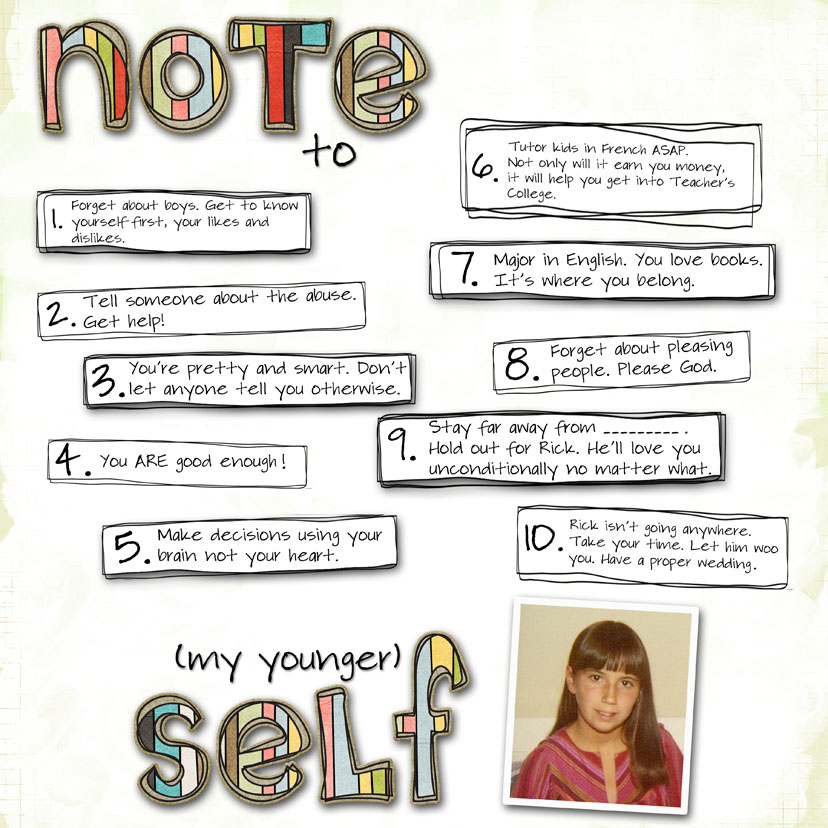 note
to
1. Forget about boys. Get to know
yourself first, your likes and
dislikes.
2. Tell someone about the abuse.
Get help!
3. You're pretty and smart. Don't
let anyone tell you otherwise.
4. You ARE good enough!
5. Make decisions using your
brain not your heart.
6. Tutor kids in French ASAP.
Not only will it earn you money,
it will help you get into Teacher's
College.
7. Major in English. You love books.
It's where you belong.
8. Forget about pleasing
people. Please God.
9. Stay far away from _________ .
Hold out for Rick. He'll love you
unconditionally no matter what.
10. Rick isn't going anywhere.
Take your time. Let him woo
you. Have a proper wedding.
(my younger)
self